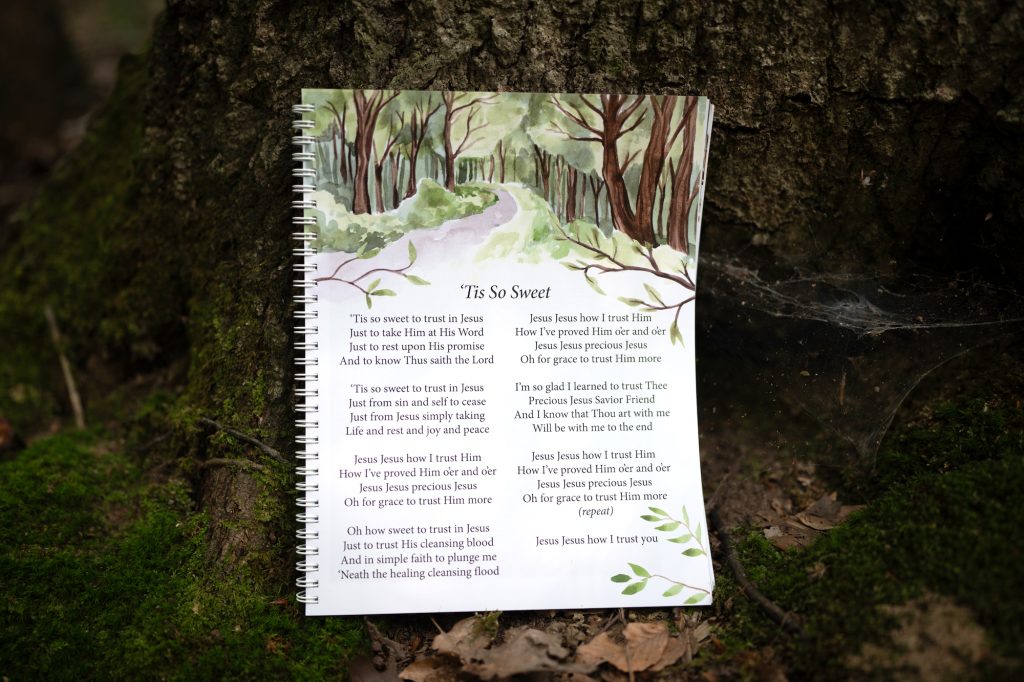 ‘Tis So Sweet
‘Tis so sweet to trust in Jesus
Just to take Him at His Word
Just to rest upon His promise
And to know Thus saith the Lord
‘Tis so sweet to trust in Jesus
Just from sin and self to cease
Just from Jesus simply taking
Life and rest and joy and peace
Jesus Jesus how I trust Him
How I’ve proved Him o’er and o’er
Jesus Jesus precious Jesus
Oh for grace to trust Him more
Oh how sweet to trust in Jesus
Just to trust His cleansing blood
And in simple faith to plunge me
‘Neath the healing cleansing flood
Jesus Jesus how I trust Him
How I’ve proved Him o’er and o’er
Jesus Jesus precious Jesus
Oh for grace to trust Him more
I’m so glad I learned to trust Thee
Precious Jesus Savior Friend
And I know that Thou art with me
Will be with me to the end
Jesus Jesus how I trust Him
How I’ve proved Him o’er and o’er
Jesus Jesus precious Jesus
Oh for grace to trust Him more
(repeat)
Jesus Jesus how I trust you